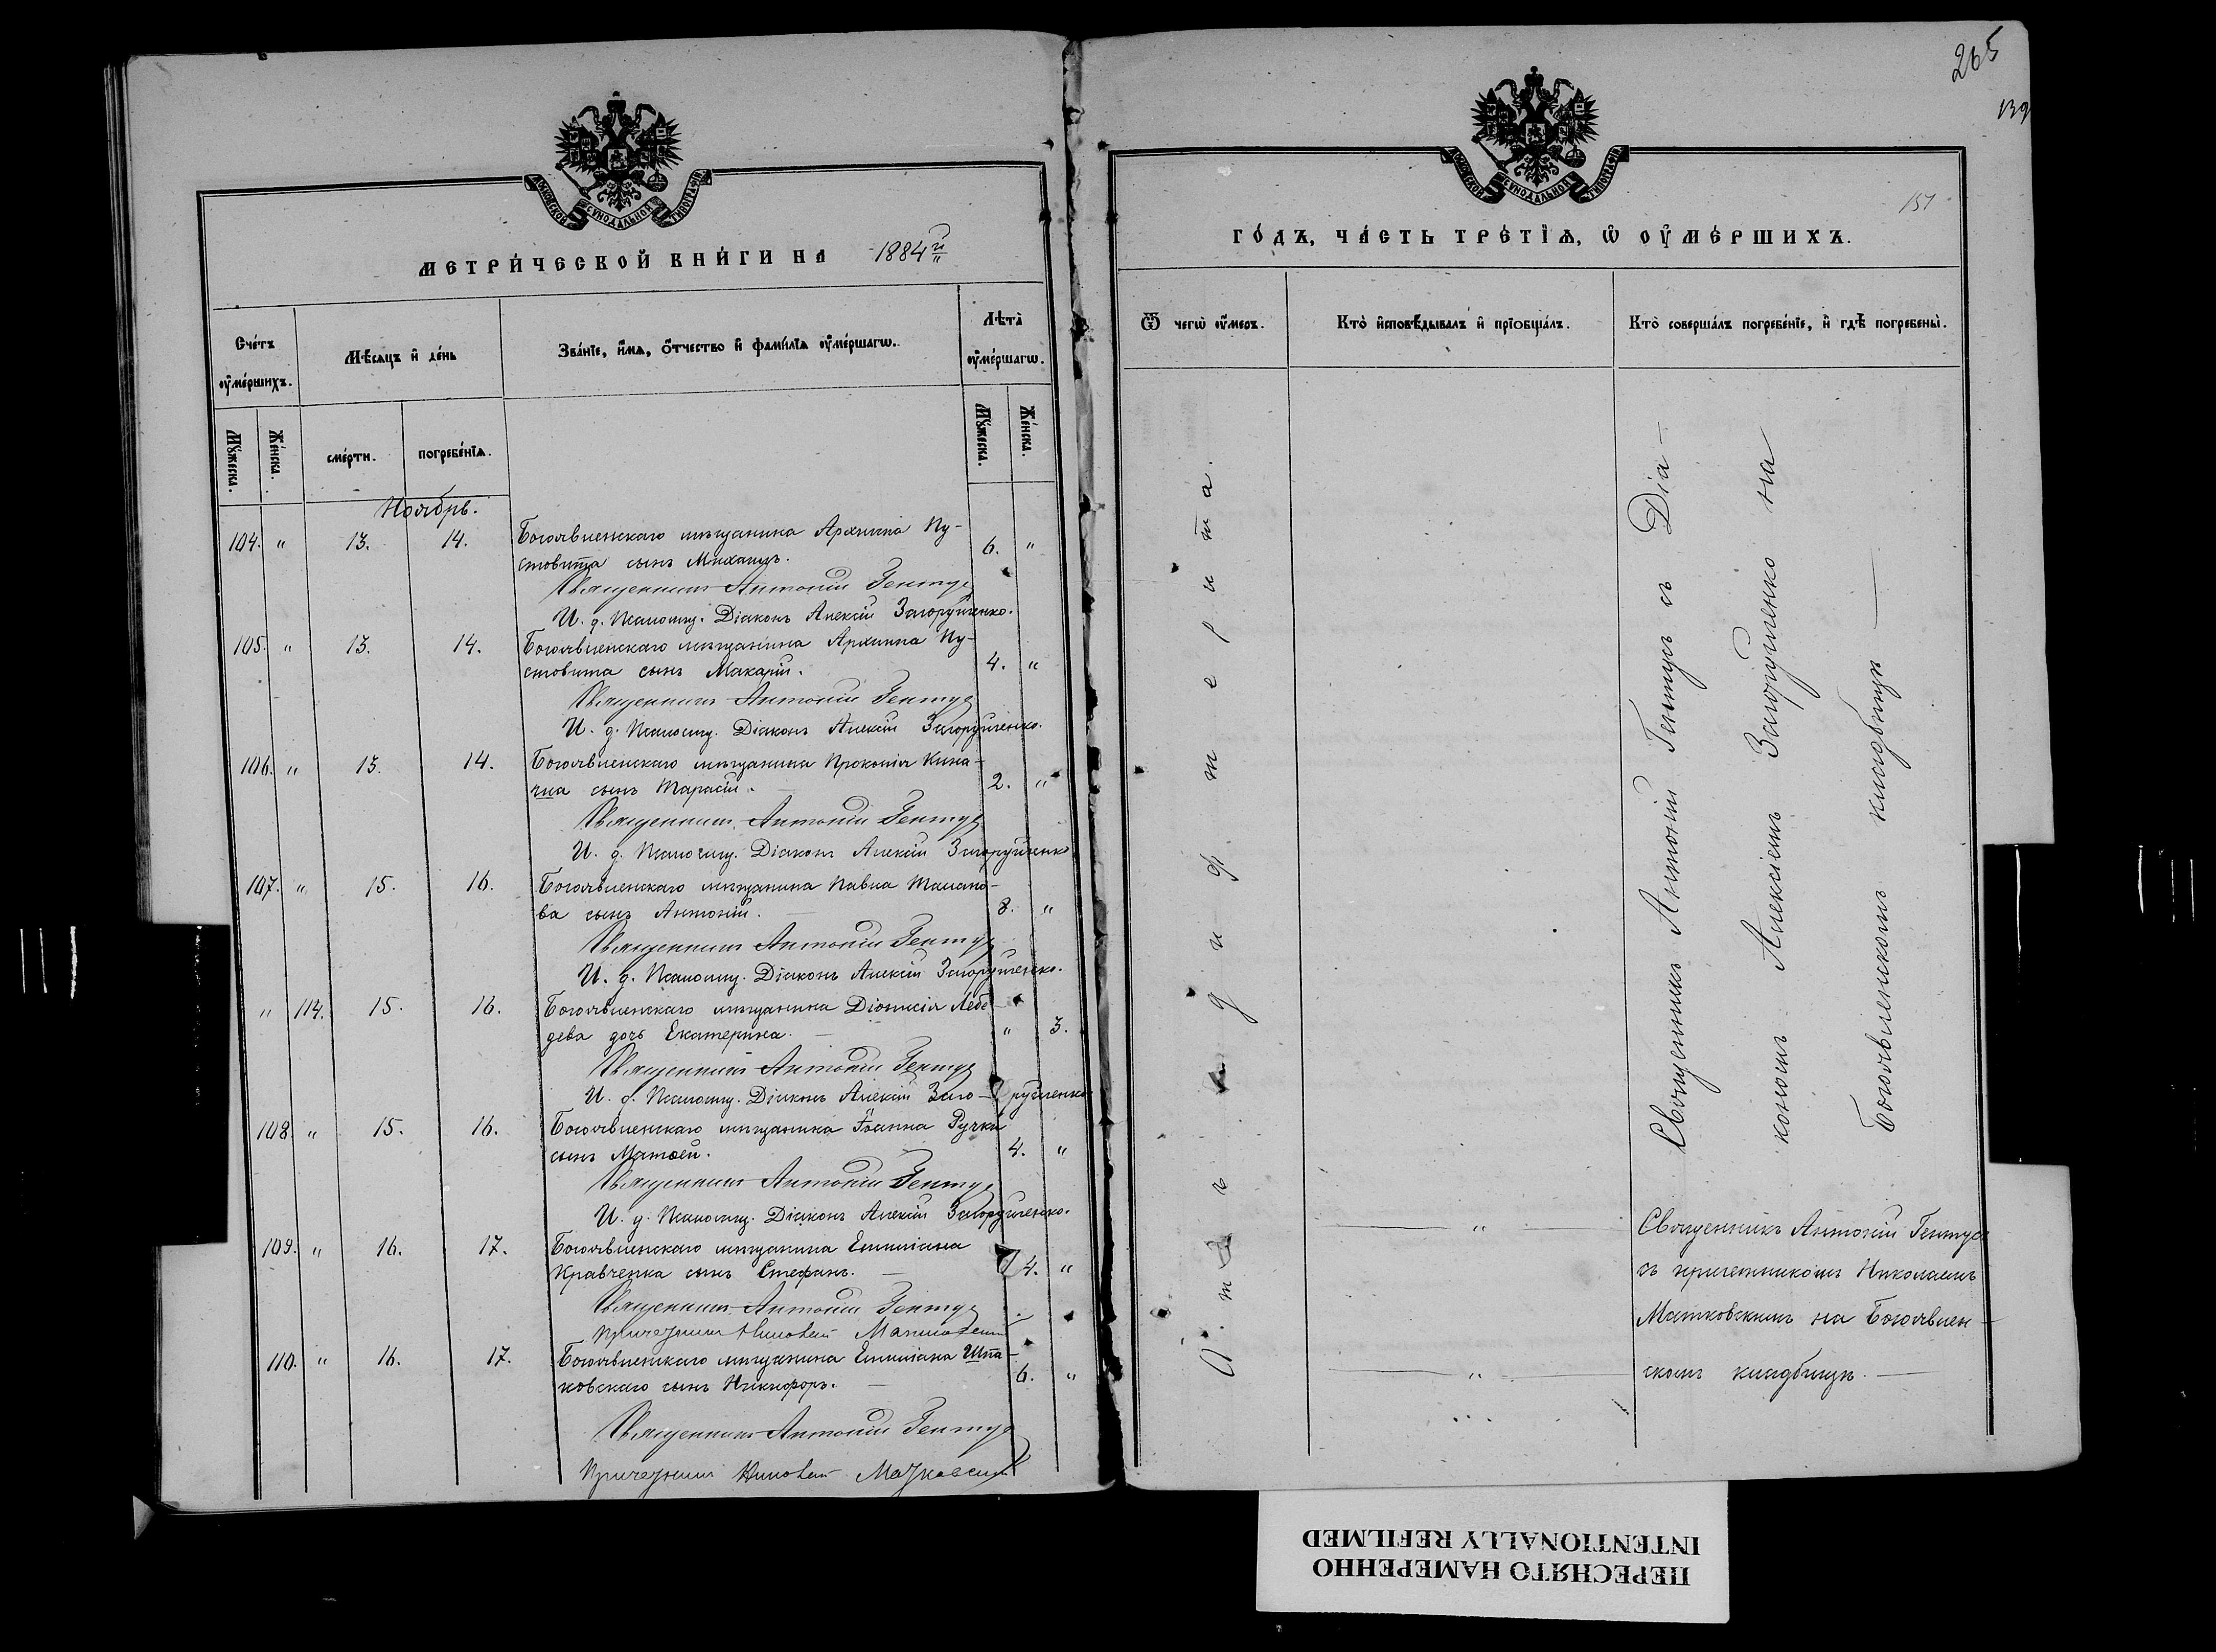 МОСКОВСКОЙ СУНОДАЛЬНОЙ ТИПОГРАФІИ
МЕТРИ́ЧЕСКОЙ КНИ́ГИ НА 1884й
Сче́тъ оу҆ме́ршихъ.
Мѣ́сяцъ и҆ де́нь
Зва́нїе, и҆́мѧ, ѻ҆́тчество и҆ фами́лїѧ оу҆ме́ршагѡ.
Лѣта̀ оу҆ме́ршагѡ.
Мꙋ́жеска.
Же́нска.
сме́рти.
погребе́нїѧ.
Мꙋ́жеска.
Же́нска.
Ноябрь.
104. " 13. 14. Богоявленскаго мѣщанина Архипа Пу- 6. "
стовита сынъ Михаилъ.
Священникъ Антоній Гентуе
И. д. Псаломщ. Діаконъ Алексій Загоруйченко.
105. " 13. 14. Богоявленскаго мѣщанина Архипа Пу- 4. "
стовита сынъ Макарій.
Священникъ Антоній Гентуе
И. д. Псаломщ. Діаконъ Алексій Загоруйченко.
106. " 13. 14. Богоявленскаго мѣщанина Прокопія Кина-
чна сынъ Тарасій. 2. "
Священникъ Антоній Гентуе
И. д. Псаломщ. Діаконъ Алексій Загоруйченко
107. " 15. 16. Богоявленскаго мѣщанина Павла Талано-
ва сынъ Антоній. 8. "
Священникъ Антоній Гентуе
И. д. Псаломщ. Діаконъ Алексій Загоруйченко.
" 114. 15. 16. Богоявленскаго мѣщанина Діонисія Лебе-
дева дочь Екатерина. " 3.
Священникъ Антоній Гентуе
И. д. Псаломщ. Діаконъ Алексій Заго-руйченко
108. " 15. 16. Богоявленскаго мѣщанина Іоанна Ручки
сынъ Матѳей. 4. "
Священникъ Антоній Гентуе
И. д. Псаломщ. Діаконъ Алексій Загоруйченко.
109. " 16. 17. Богоявленскаго мѣщанина Емиліана
Кравченка сынъ Стефанъ. 4. "
Священникъ Антоній Гентуе
Причетникъ Николай Матковскій
110. " 16. 17. Богоявленскаго мѣщанина Емиліана Шпа-
ковскаго сынъ Никифоръ. 6. "
Священникъ Антоній Гентуе
Причетникъ Николай Матковскій
265
139
151
МОСКОВСКОЙ СУНОДАЛЬНОЙ ТИПОГРАФІИ
ГО́ДЪ, ЧА́СТЬ ТРЕ́ТЇѦ, Ѡ҆ ОУ҆МЕ́РШИХЪ.
Ѿ чегѡ̀ оу҆́меръ.
Кто̀ и҆сповѣ́дывалъ и҆ прїобща́лъ.
Кто̀ соверша́лъ погребе́нїе, и҆ гдѣ̀ погребены̀.
Отъ дифтерита.
Священникъ Антоній Гентуе съ Діа-
кономъ Алексіемъ Загоруйченко на
Богоявленскомъ кладбищѣ
" Священникъ Антоній Гентуе
съ причетникомъ Николаемъ
Матковскимъ на Богоявлен-
" скомъ кладбищѣ.
ПЕРЕСНЯТО НАМЕРЕННО
INTENTIONALLY REFILMED